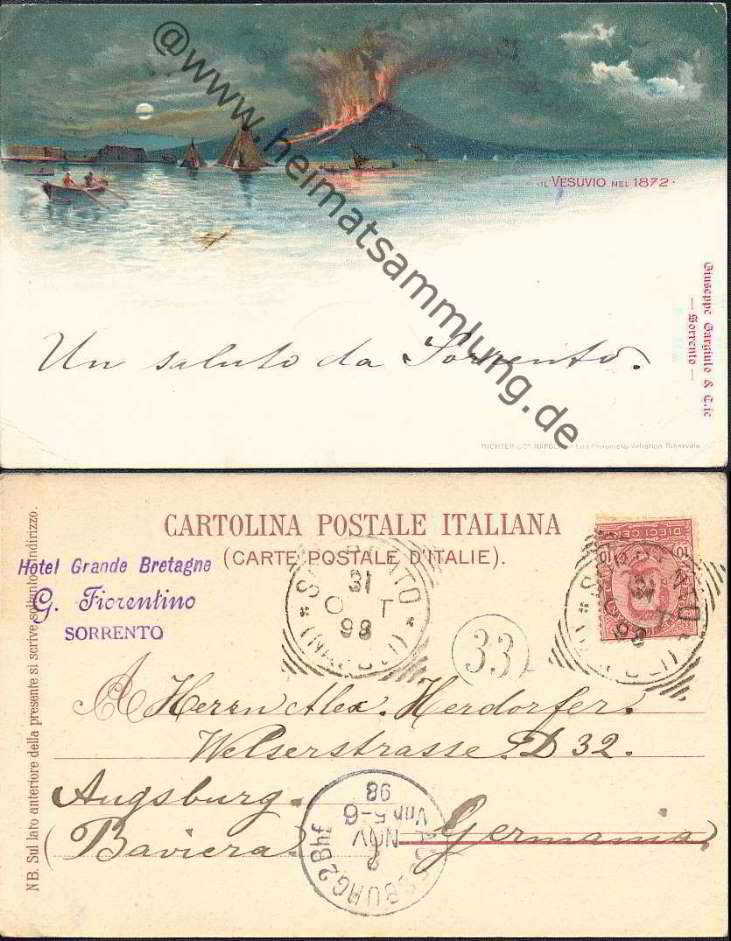 @www.heimatsammlung.de
IL VESUVIO NEL 1872.
Giuseppe Gargiulo & C.ie
— Sorrento —
Un saluto da Sorrento.
RICHTER & Cº NAPOLI
CARTOLINA POSTALE ITALIANA
(CARTE POSTALE D'ITALIE).
NB. Sul lato anteriore della presente si scrive soltanto l'indirizzo.
Hotel Grande Bretagne
G. Fiorentino
SORRENTO
31
98
331
10
10
98
A Herrn Alex. Herdorfer.
Welserstrasse. D 32.
Augsburg.
(Baviera) Germania)
BURG 2 Bhf
2
NOV
Vm 5-6
98